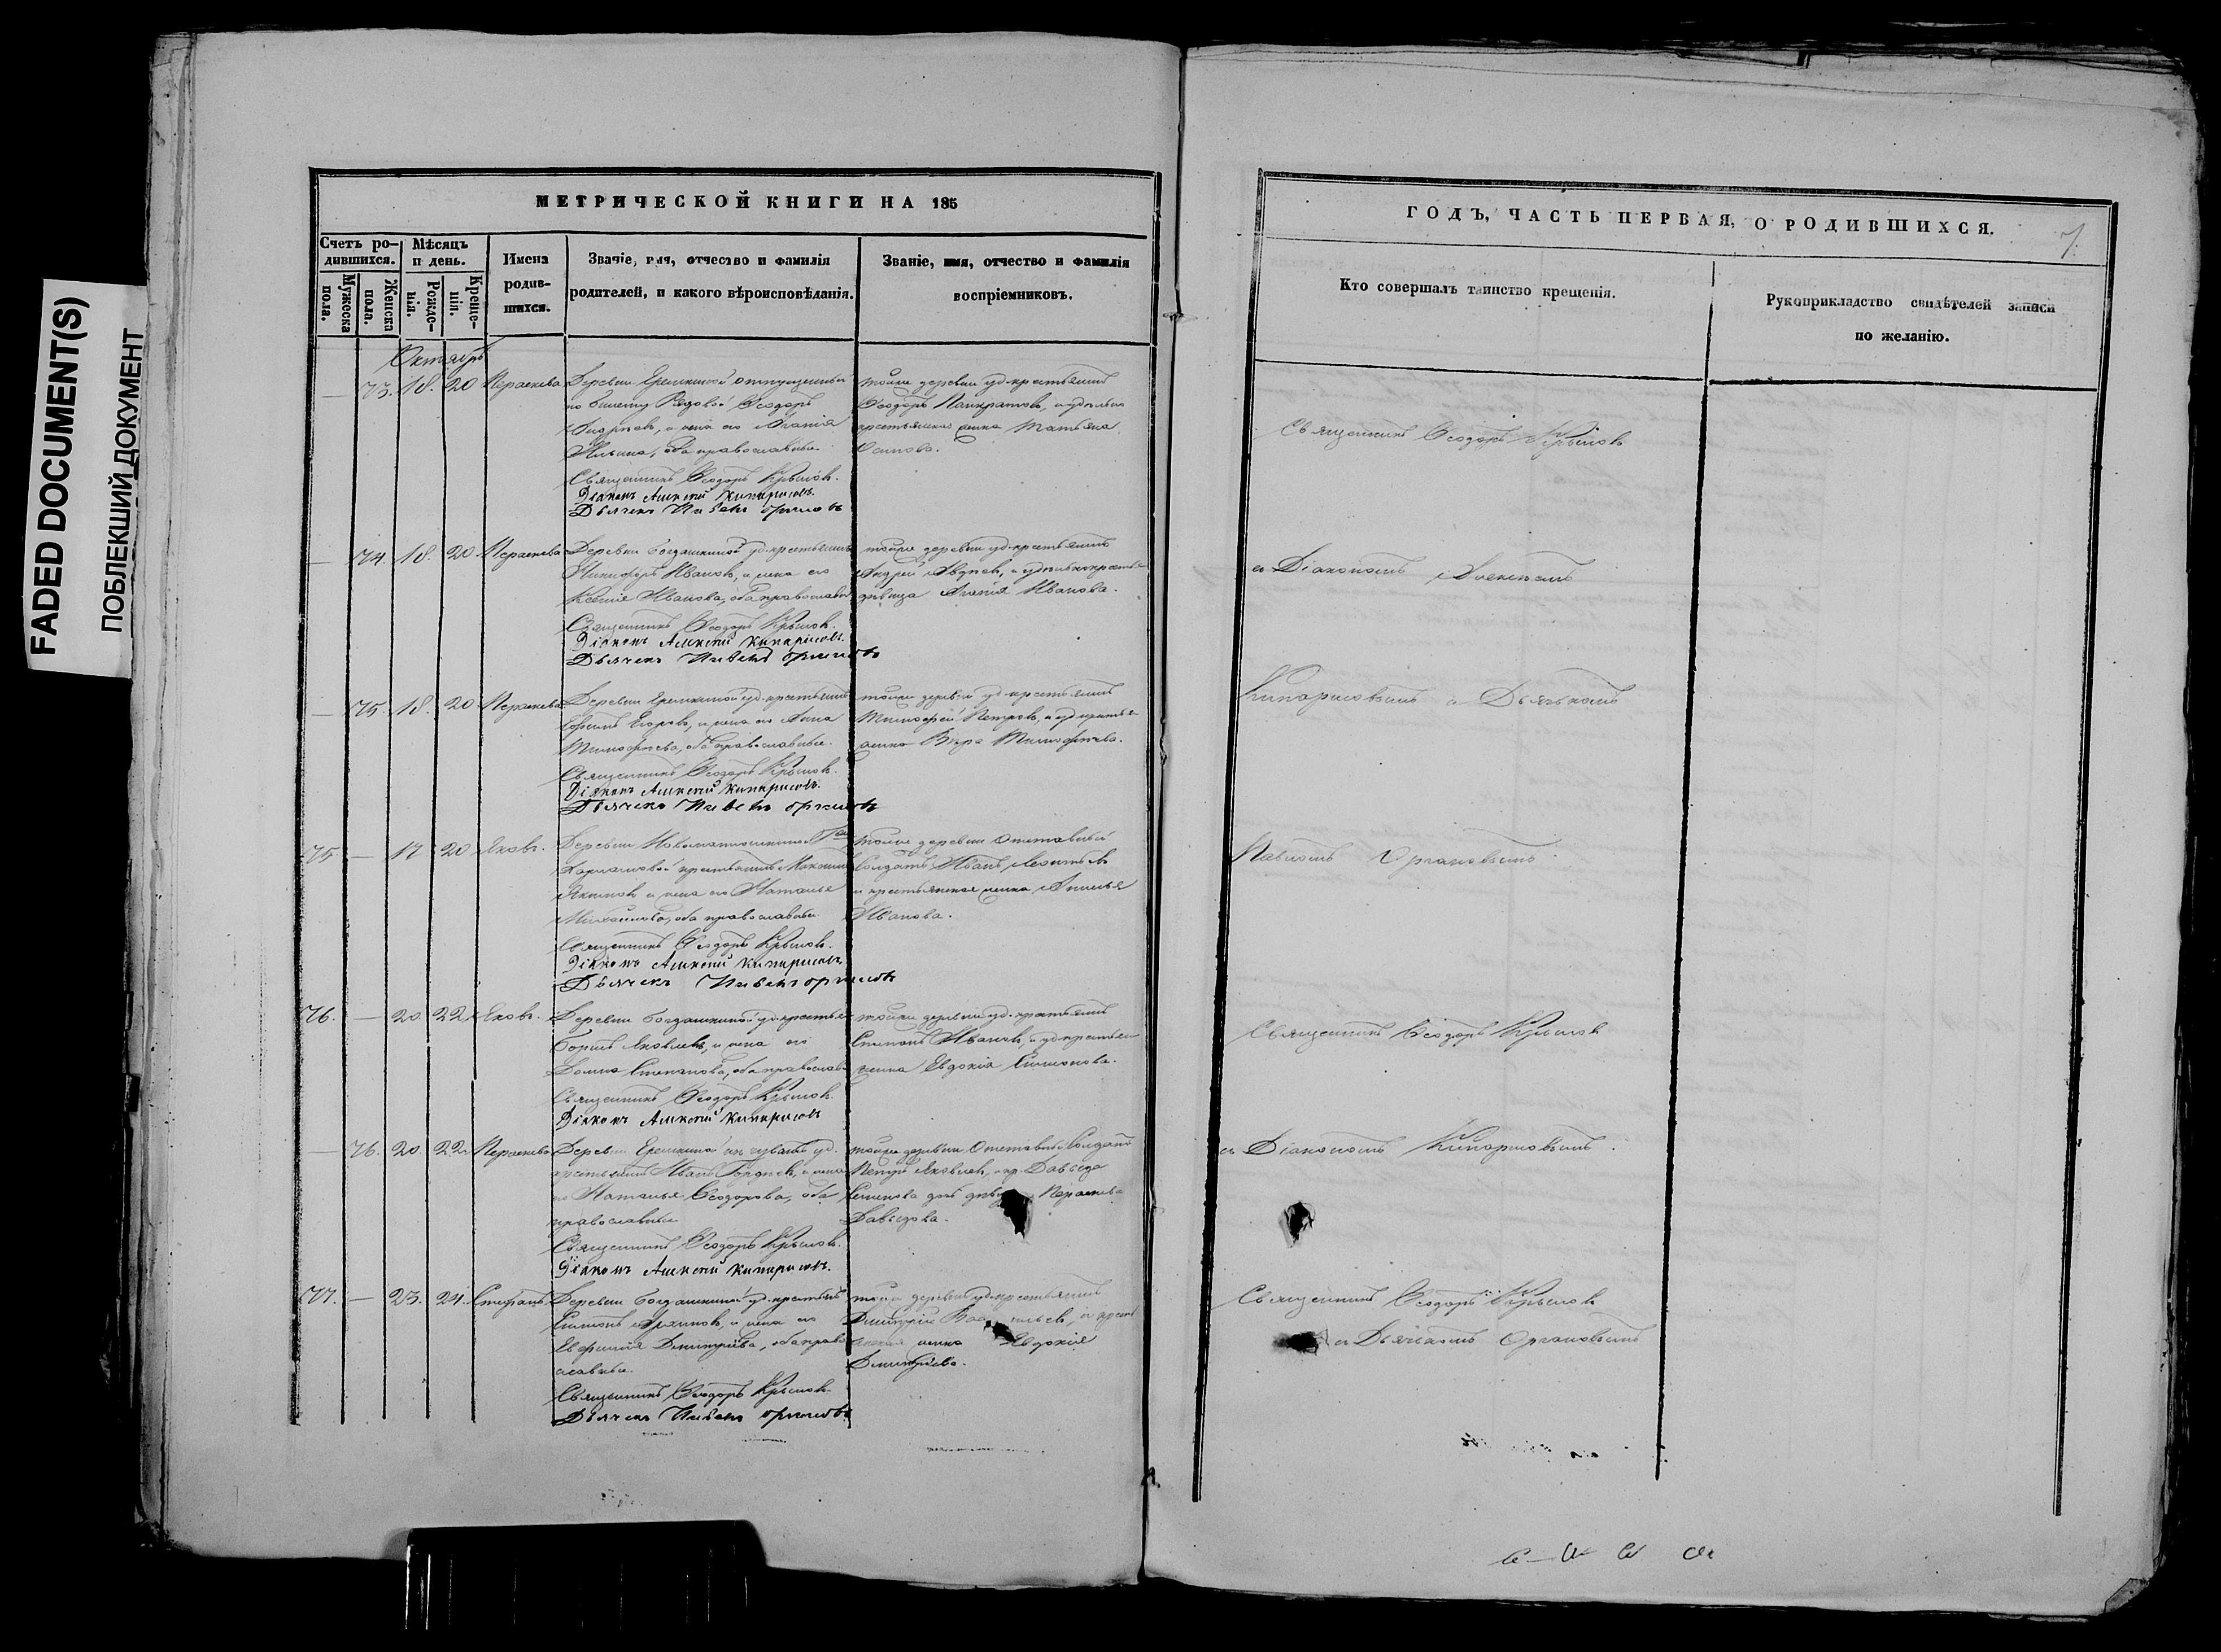 FADED DOCUMENT(S)
ПОБЛЕКШИЙ ДОКУМЕНТ
МЕТРИЧЕСКОЙ КНИГИ НА 185
Счетъ ро-
дившихся.
Мужеска пола.
Женска пола.
Мѣсяцъ
и день.
Рожде-
нія.
Креще-
нія.
Имена
родив-
шихся.
Званіе, имя, отчество и фамилія
родителей, и какого вѣроисповѣданія.
Званіе, имя, отчество и фамилія
воспріемниковъ.
Октябрь
— 73. 18. 20 Параскева
Деревни Ерешкиной отпущенный
по билету Рядовой Ѳеодоръ
и жена его Агаѳія
Ильина, оба православные.
Священникъ Ѳеодоръ Крыловъ.
Діаконъ Алексѣй Кипарисовъ.
Дьячекъ Павелъ Органовъ
тойже деревни уд. крестьянинъ
Ѳеодоръ Панкратовъ, и удѣльна
крестьянская жена Татьяна
Осипова.
— 74. 18. 20 Параскева
Деревни Богдашкиной уд. крестьянинъ
Никифоръ Ивановъ, и жена его
Ксенія Иванова, оба православн
Священникъ Ѳеодоръ Крыловъ.
Діаконъ Алексѣй Кипарисовъ.
Дьячекъ Павелъ Органовъ
тойже деревни уд. крестьянинъ
Андрей Авдѣевъ, и
дѣвица Агаѳія Иванова.
— 75. 18. 20 Параскева
Деревни Ерешкиной уд. крестьянинъ
Егоровъ, и жена его Анна
Тимофѣева, оба православные.
Священникъ Ѳеодоръ Крыловъ.
Діаконъ Алексѣй Кипарисовъ.
Дьячекъ Павелъ Органовъ
тойже деревни уд. крестьянинъ
Тимофей Петровъ, и уд. крестья
жена Вѣра Тимофѣева.
75 — 17 20 Яковъ.
Деревни
крестьянинъ
и жена его Наталья
Михайлова, оба православные
Священникъ Ѳеодоръ Крыловъ.
Діаконъ Алексѣй Кипарисовъ
Дьячекъ Павелъ Органовъ
тойже деревни Отставный
Солдатъ Иванъ Леонтьевъ
и крестьянская жена
Иванова.
76. — 20. 22. Яковъ.
Деревни Богдашкиной уд. крестья
Яковлевъ, и жена его
Домна Степанова, оба православ
Священникъ Ѳеодоръ Крыловъ
Діаконъ Алексѣй Кипарисовъ
тойже деревни уд. крестьянинъ
Ивановъ, и уд. крестьян
жена Евдокія Симонова.
— 76. 20. 22. Параскева
Деревни Ерешкиной изъ чувашъ уд.
крестьянинъ Иванъ Гордѣевъ, и жена
его Наталья Ѳеодорова, оба
православные
Священникъ Ѳеодоръ Крыловъ.
Діаконъ Алексѣй Кипарисовъ.
тойже деревни Отставный Солдатъ
Петръ Яковлевъ, и кр. Давыда
Семенова Параскева
Давыдова.
77. — 23. 24. Стефанъ
Деревни Богдашкиной уд. крестьян
Симонъ и жена его
Евфимія Дмитріева, оба право
славные.
Священникъ Ѳеодоръ Крыловъ
Дьячекъ Павелъ Органовъ
тойже деревни уд. крестьянинъ
Дмитрій
жена Евдокія
Дмитріева.
ГОДЪ, ЧАСТЬ ПЕРВАЯ, О РОДИВШИХСЯ.
7.
Кто совершалъ таинство крещенія.
Рукоприкладство свидѣтелей записи
по желанію.
Священникъ Ѳеодоръ Крыловъ
съ Діакономъ Алексѣемъ
Кипарисовымъ и Дьячкомъ
Павломъ Органовымъ.
Священникъ Ѳеодоръ Крыловъ
съ Діакономъ Кипарисовымъ.
Священникъ Ѳеодоръ Крыловъ
съ Дьячкомъ Органовымъ